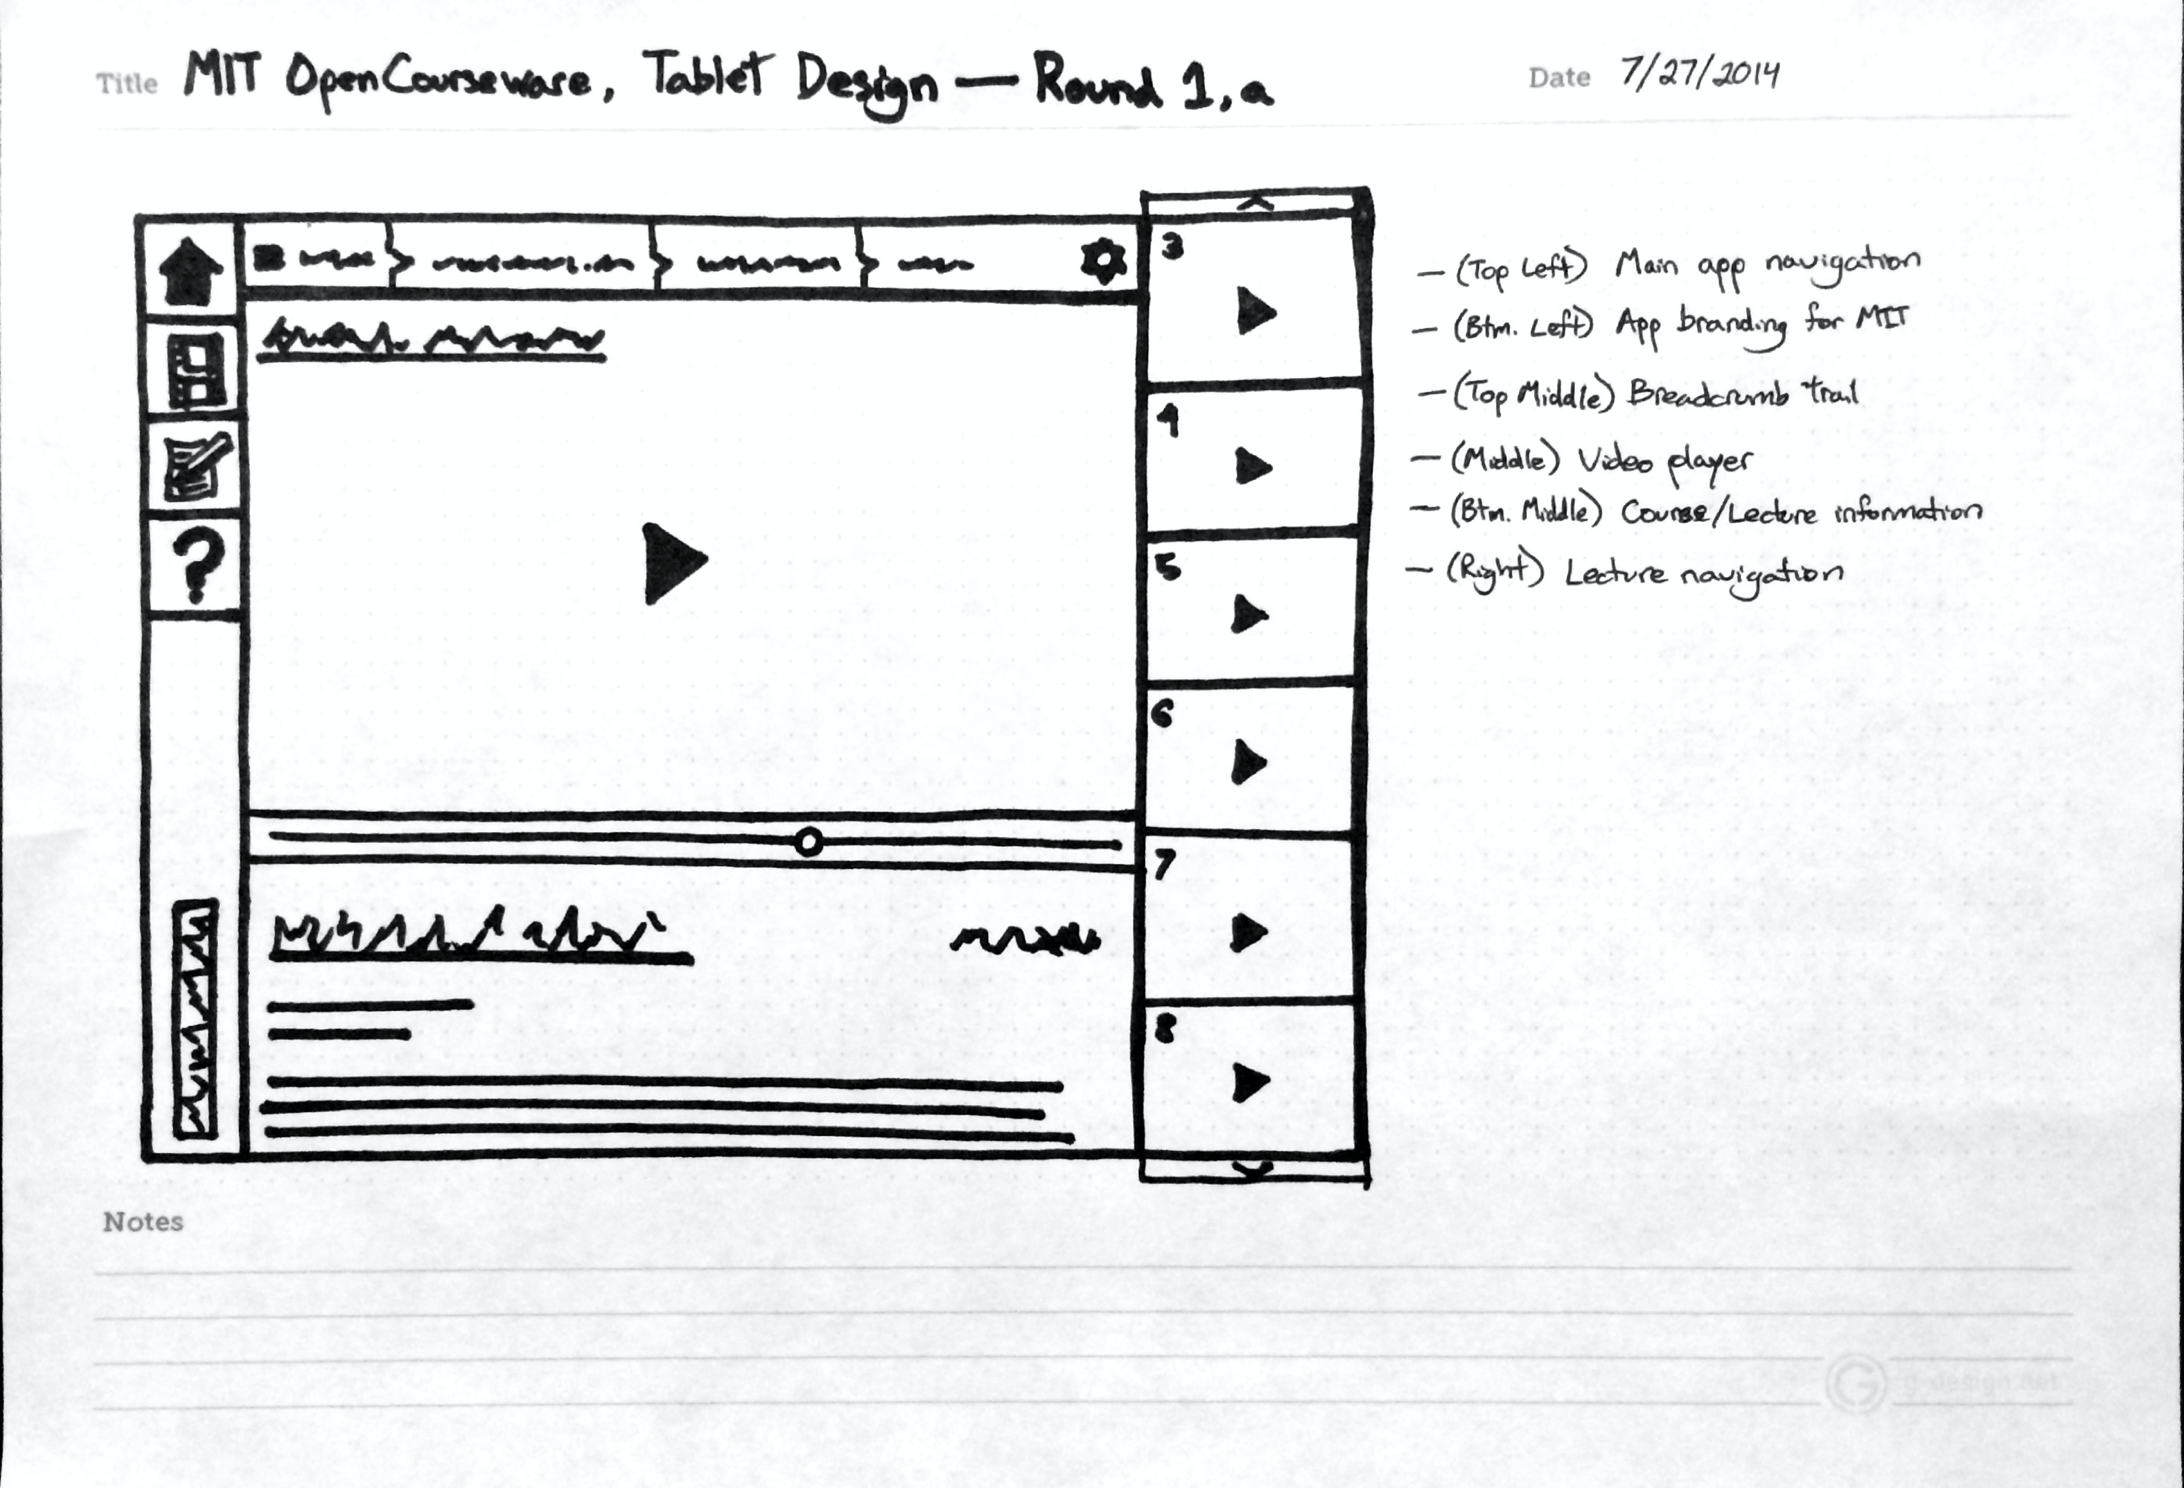 Title MIT OpenCourseware, Tablet Design — Round 1, a
Date 7/27/2014
— (Top Left) Main app navigation
— (Btm. Left) App branding for MIT
— (Top Middle) Breadcrumb trail
— (Middle) Video player
— (Btm. Middle) Course/Lecture information
— (Right) Lecture navigation
?
3
4
5
6
7
8
Notes
g-design.net